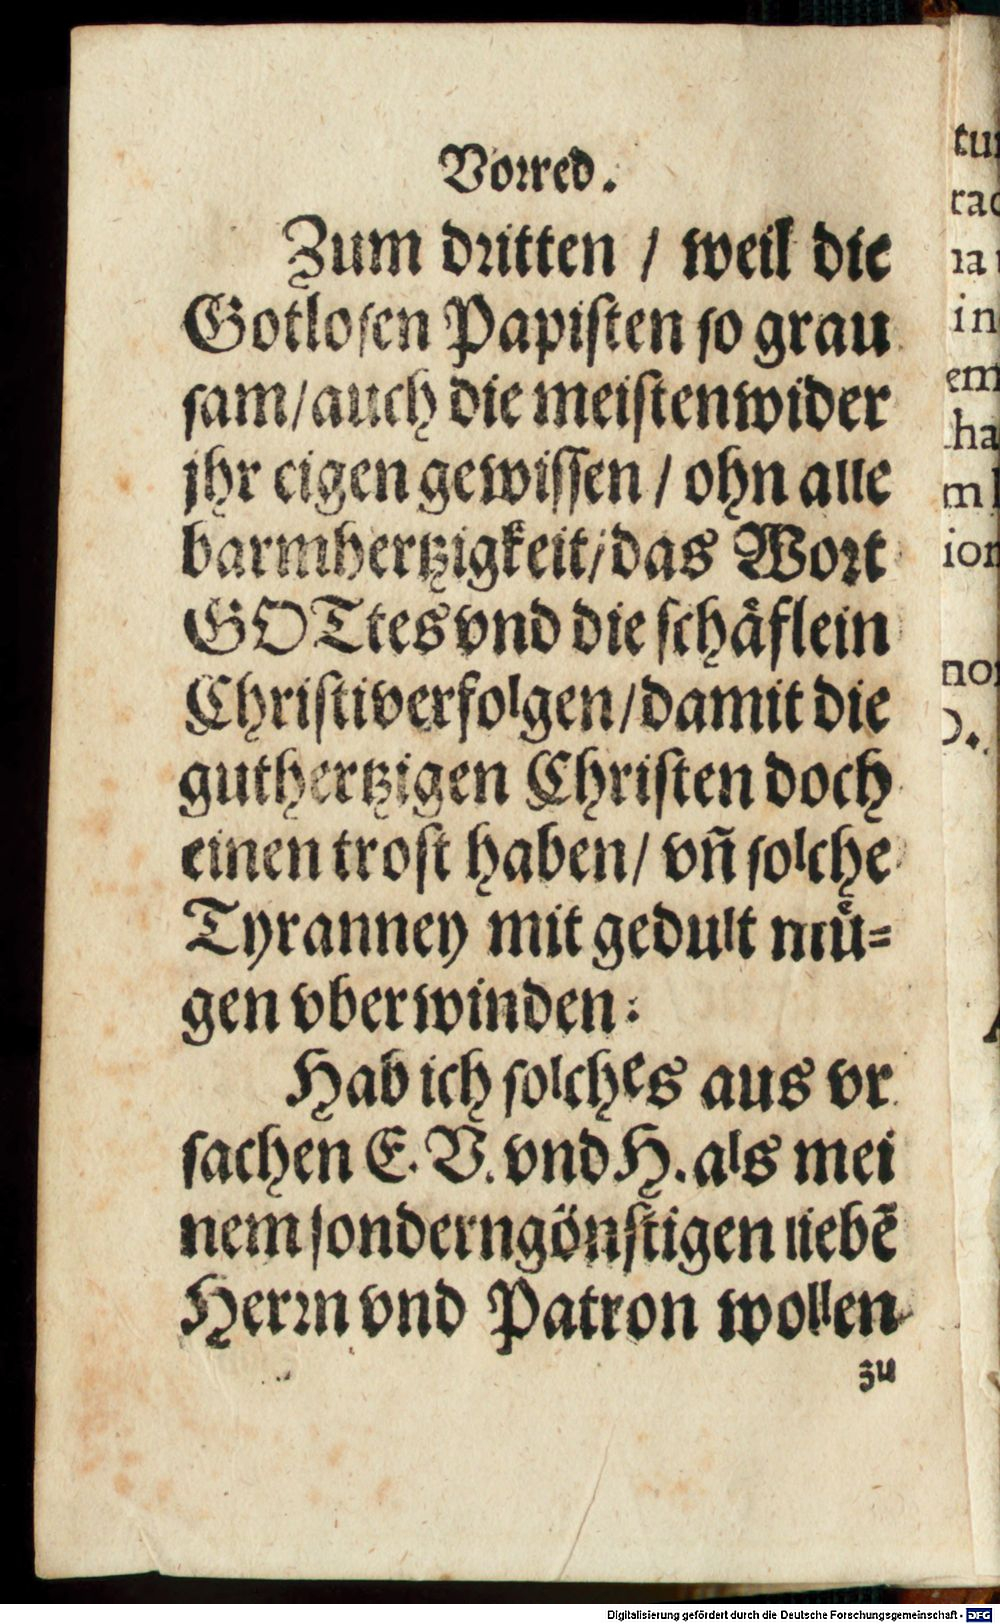 Vorred.
Zum dritten / weil die
Gotlosen Papisten so grau
sam/ auch die meisten wider
jhr eigen gewissen / ohn alle
barmhertzigkeit/ das Wort
GOTtes vnd die schäflein
Christi verfolgen/ damit die
guthertzigen Christen doch
einen trost haben/ vñ solche
Tyranney mit gedult mü=
gen vberwinden:
Hab ich solches aus vr
sachen E. V. vnd H. als mei
nem sonderngönstigen liebē
Herrn vnd Patron wollen
zu
Digitalisierung gefördert durch die Deutsche Forschungsgemeinschaft - DFG